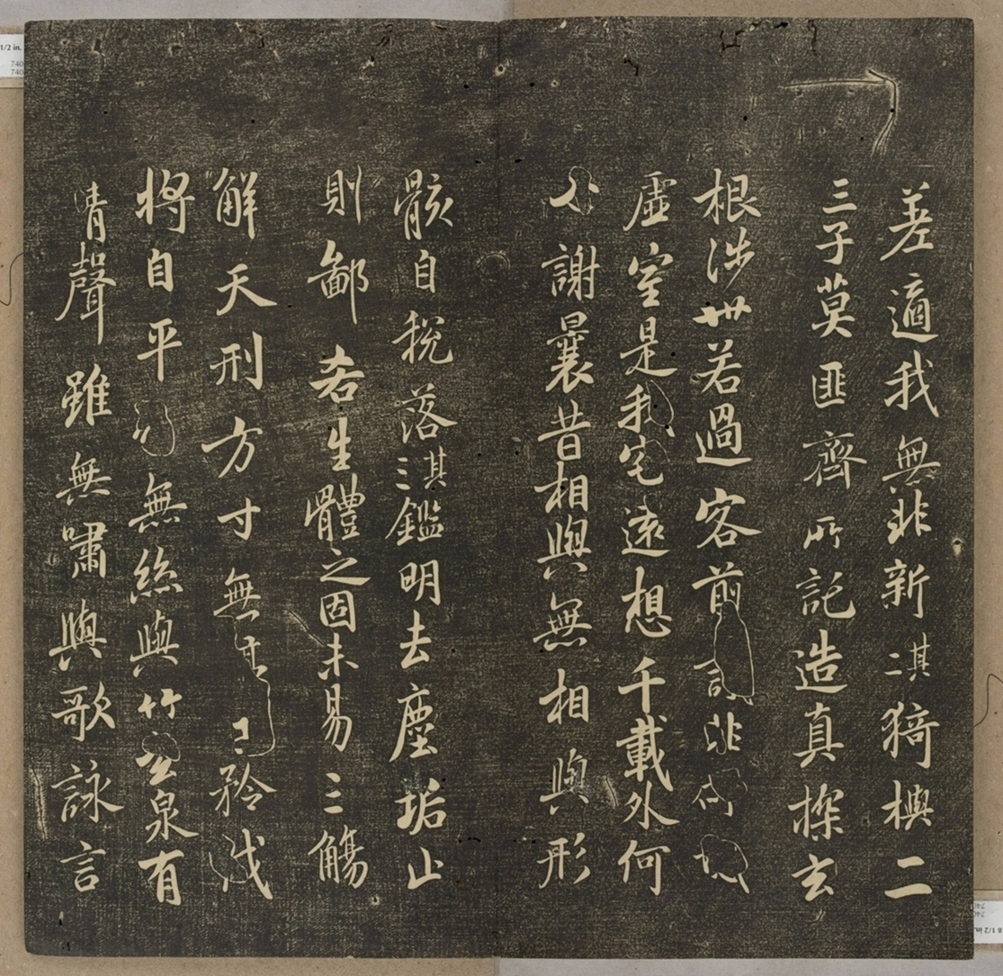 差適我無非新其二猗與二
三子莫匪齊所託造真探玄
根涉世若過客前非
虛室是我宅遠想千載外何
謝曩昔相與無相與形
骸自稅落其三鑑明去塵垢止
則鄙吝生體之固未易三觴
解天刑方寸無矜伐
將自平無絲與竹玄泉有
清聲雖無嘯與歌詠言